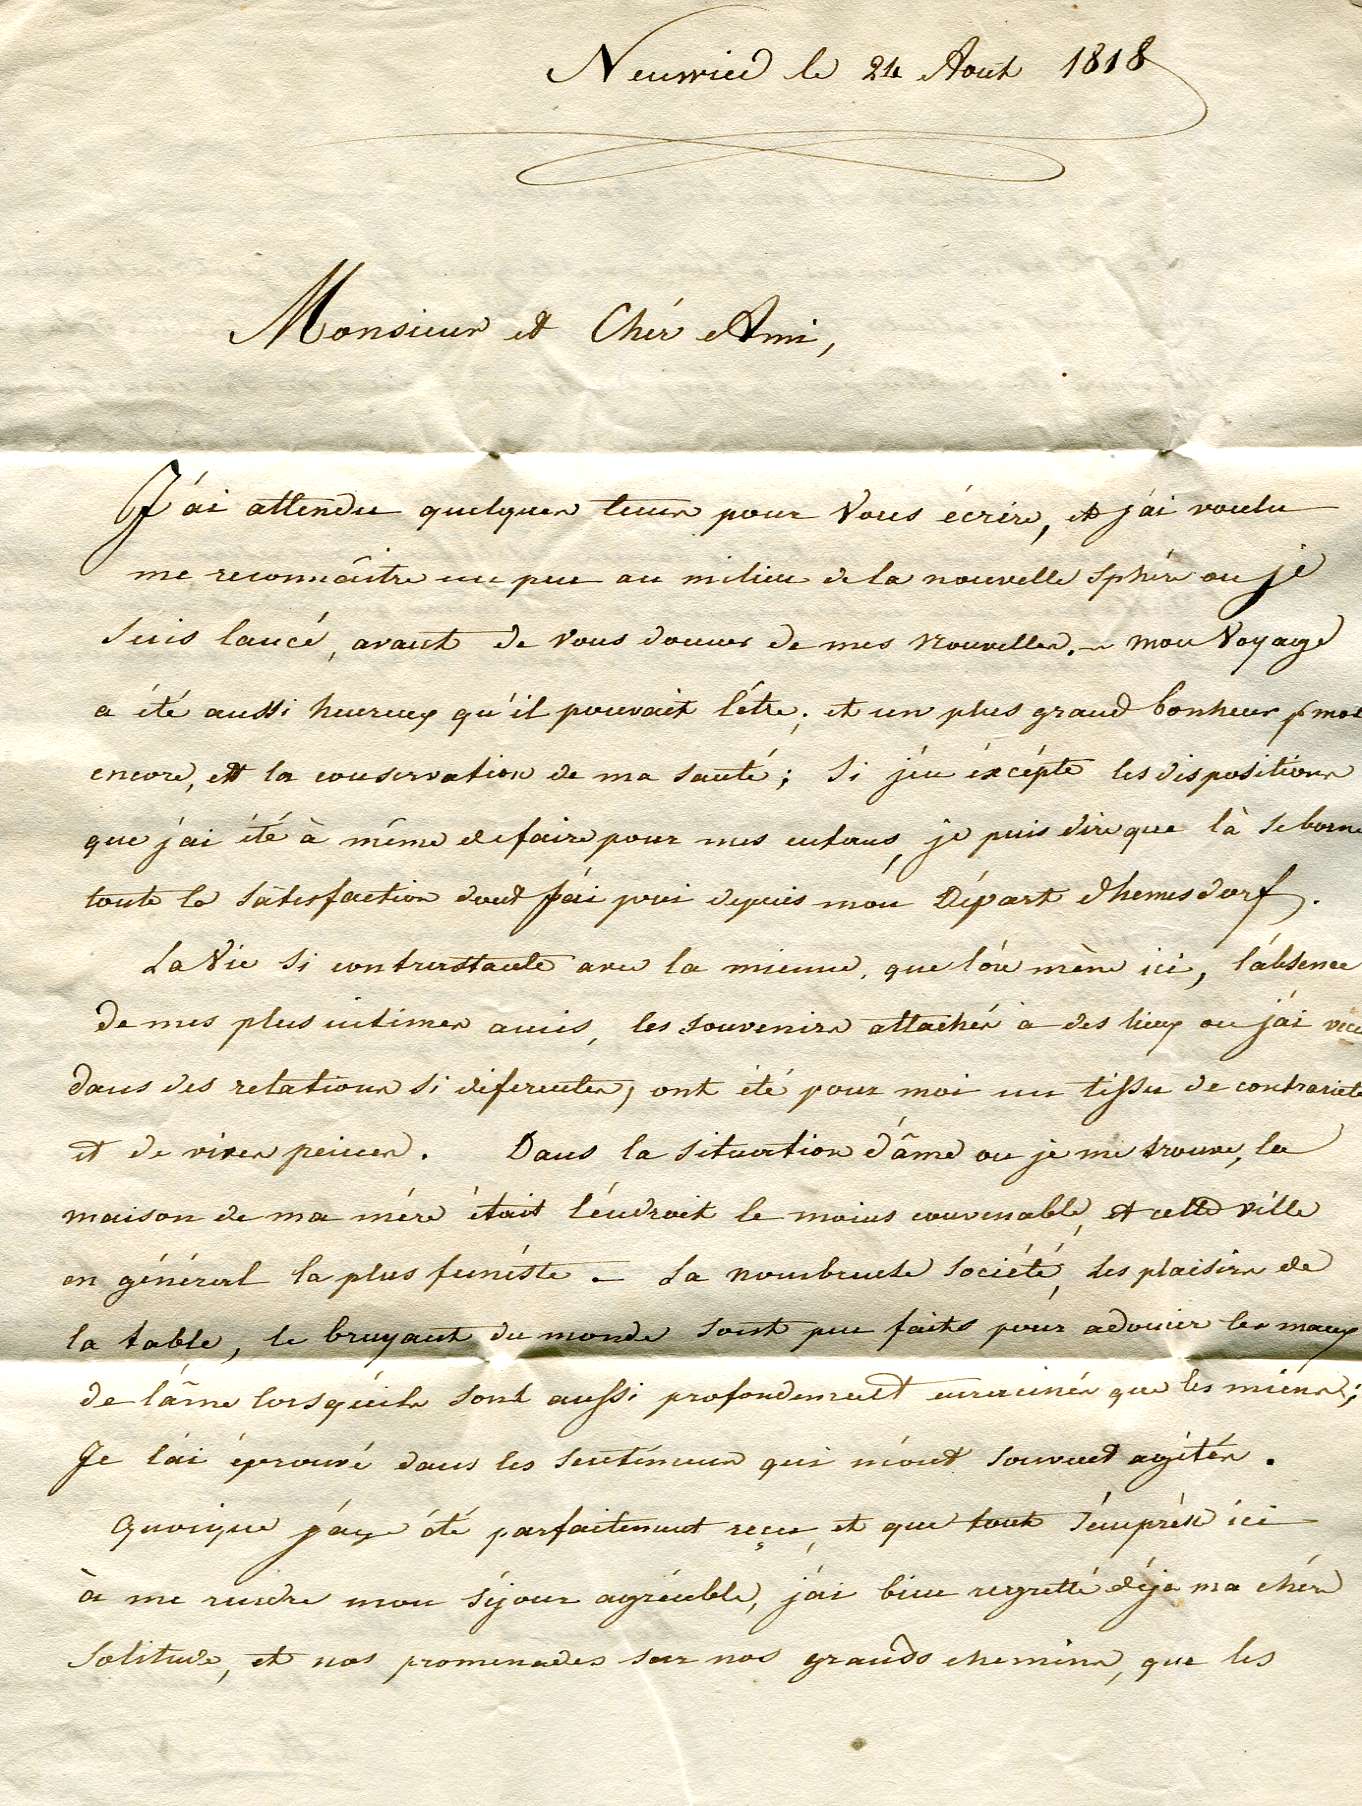 Neuwied le 24 Aout 1818
Monsieur et Chér Ami,
J'ai attendu quelques tems pour Vous écrire, et j'ai voulu
me reconnâitre un peu au milieu de la nouvelle sphére ou je
suis lancé, avant de vous donner de mes nouvelles. ~ mon Voyage
a été aussi heureux qu'il pouvait l'être; et un plus grand bonheur pr moi
encore, est la conservation de ma santé; si j'en éxcépte les dispositions
que j'ai été à même de faire pour mes enfans, je puis dire que là se borne
toute la sàtisfaction dont j'ai joui depuis mon Départ d'hemsdorf.
La Vie si contrastante avec la mienne, que l'on mène ici, l'absence
de mes plus intimes amis, les souvenirs attachés a des lieux ou j'ai vecu
dans des relations si diferentes, ont été pour moi un tissu de contrarietés
et de vives peines. Dans la situation d'âme ou je me trouve, la
maison de ma mére était l'endroit le moins convenable, et cette ville
en général la plus funéste. — La nombreuse société, les plaisirs de
la table, le bruyant du monde sont peu faits pour adoucir les maux
de l'âme lorsqu'ils sont aussi profondement enracinés que les miens;
Je l'ai éprouvé dans les sentimens qui m'ont souvent agités.
Quoique j'aye été parfaitement reçu, et que tout s'empresse ici
à me rendre mon séjour agréable, j'ai bien regretté déja ma chére
solitude, et nos promenades sur nos grands chemins, que les